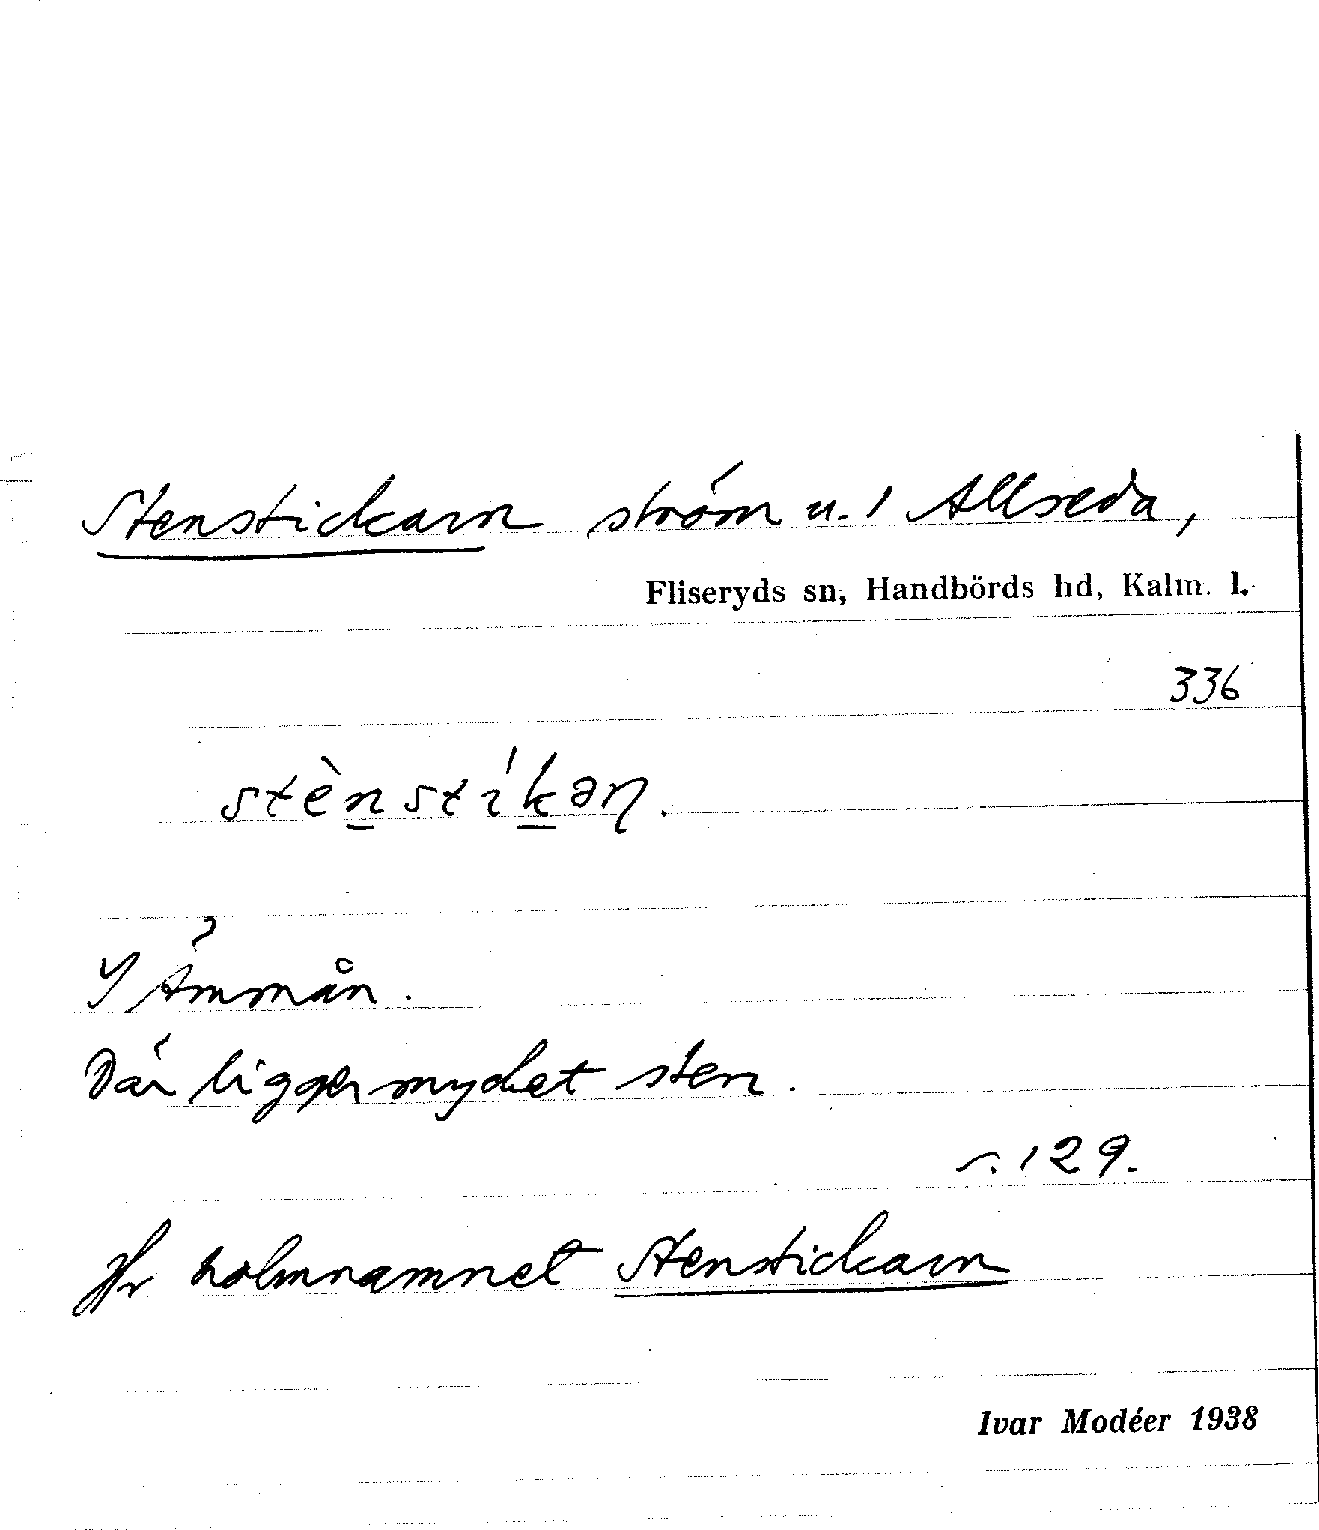 Stenstickarn ström u. 1 Allseda,
Fliseryds sn, Handbörds hd, Kalm. l.
336
stènstíkəɳ.
I Ämmån.
Där ligger mycket sten.
s. 129.
Jfr holmnamnet Stenstickarn
Ivar Modéer 1938